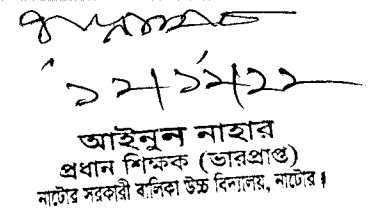 ১২/১২/২২
আইনুন নাহার
প্রধান শিক্ষক (ভারপ্রাপ্ত)
নাটোর সরকারী বালিকা উচ্চ বিদ্যালয়, নাটোর।